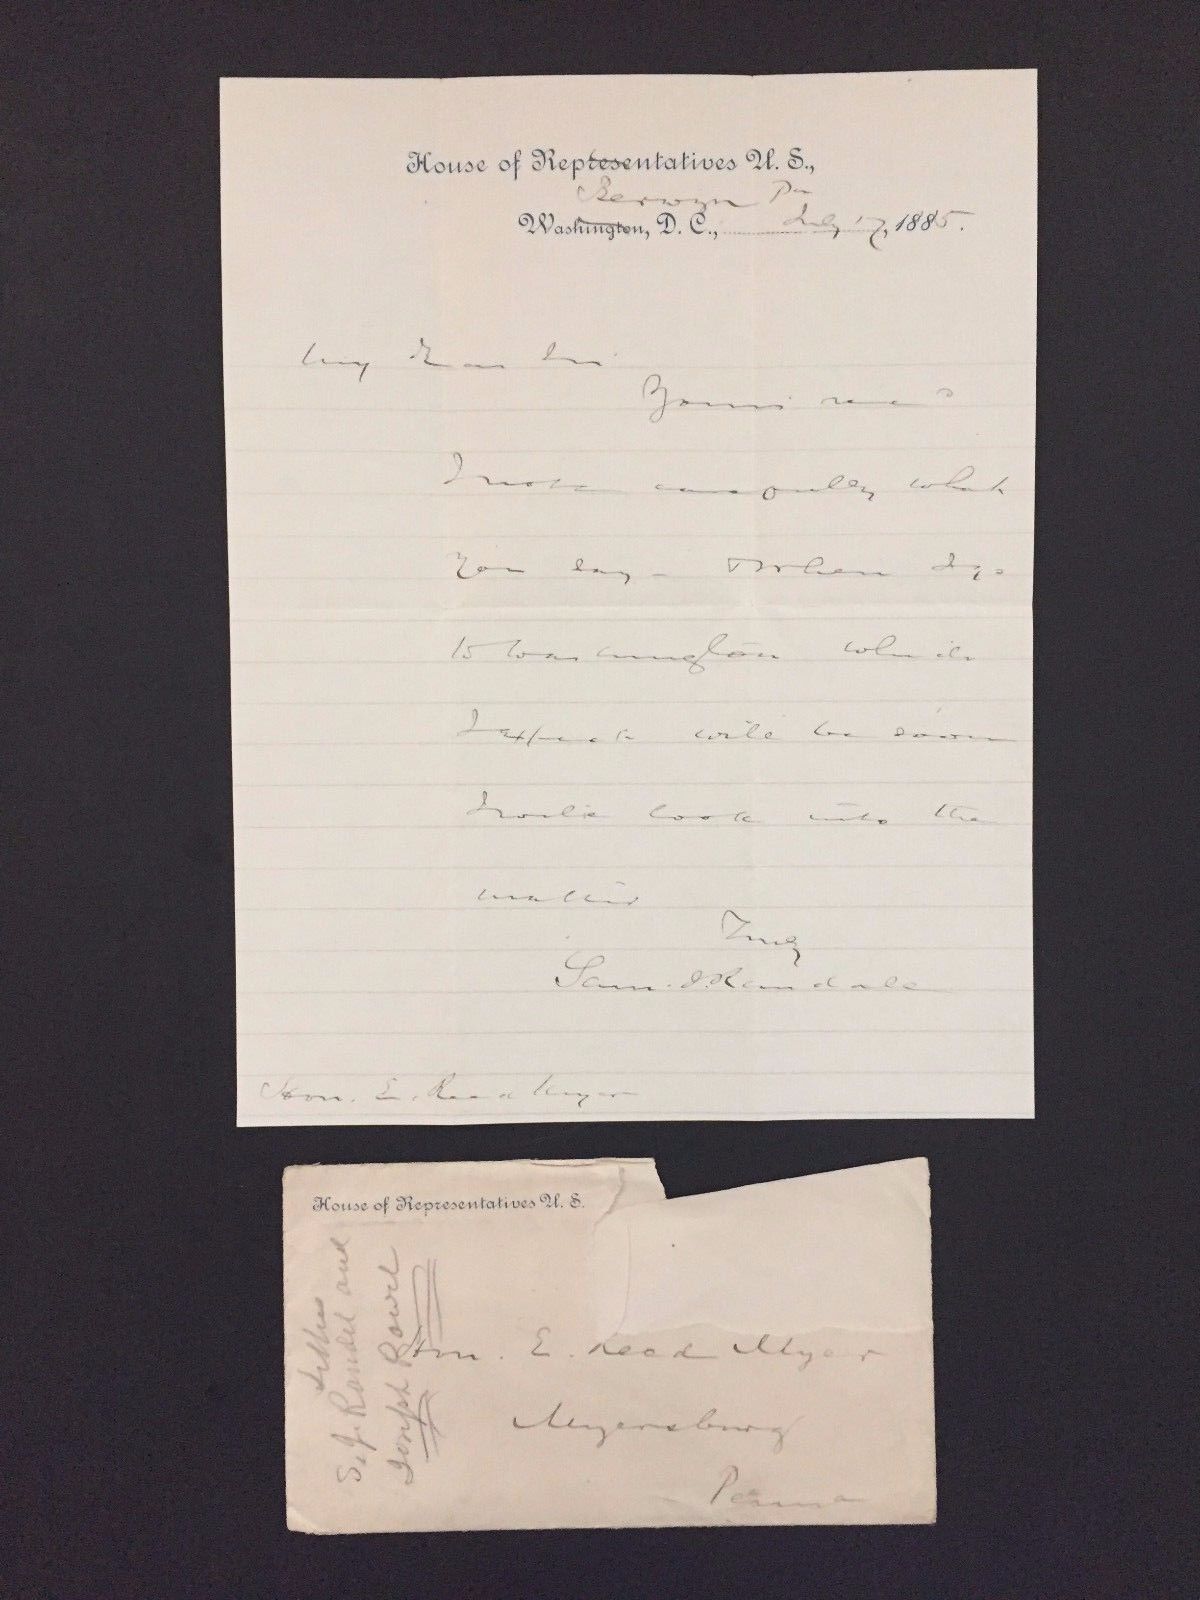 House of Representatives U. S.,
Berwyn Pa
Washington, D. C., July 17, 1885.
My Dear Sir
Yours rec'd
I note carefully what
you say - When I go
to Washington which
I expect will be soon
I will look into the
matter
Truly
Sam. J. Randall
Hon. E. Reed Myer
House of Representatives U. S.
Letters
S. J. Randel and
Joseph Powel
Hon. E. Reed Myer
Myersburg
Penna